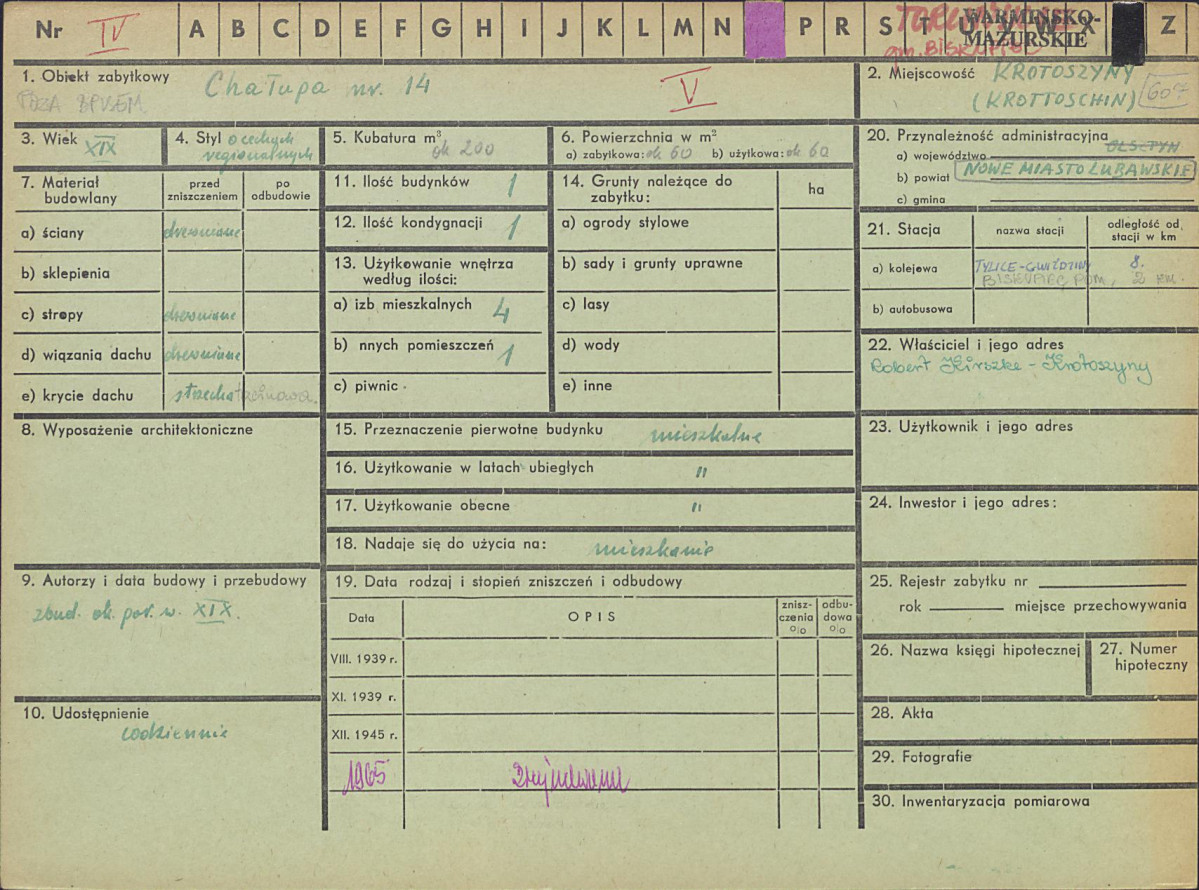 Nr IV A B C D E F G H I J K L M N P R S T U V W X Z
WARMIŃSKO-
MAZURSKIE
gm. BISKUPIEC
1. Obiekt zabytkowy Chałupa nr. 14
POZA SPISEM
V
2. Miejscowość KROTOSZYNY
(KROTTOSCHIN) 607
3. Wiek XIX
4. Styl o cechach
regionalnych
5. Kubatura m³ ok 200
6. Powierzchnia w m²
a) zabytkowa: ok 60 b) użytkowa: ok 60
7. Materiał
budowlany
przed
zniszczeniem
po
odbudowie
a) ściany drewniane
b) sklepienia
c) stropy drewniane
d) wiązania dachu drewniane
e) krycie dachu strzecha trzcinowa.
8. Wyposażenie architektoniczne
9. Autorzy i data budowy i przebudowy
zbud. ok. poł. w. XIX.
10. Udostępnienie
codziennie
11. Ilość budynków 1
12. Ilość kondygnacji 1
13. Użytkowanie wnętrza
według ilości:
a) izb mieszkalnych 4
b) nnych pomieszczeń 1
c) piwnic
14. Grunty należące do
zabytku:
ha
a) ogrody stylowe
b) sady i grunty uprawne
c) lasy
d) wody
e) inne
15. Przeznaczenie pierwotne budynku mieszkalne
16. Użytkowanie w latach ubiegłych "
17. Użytkowanie obecne "
18. Nadaje się do użycia na: mieszkanie
19. Data rodzaj i stopień zniszczeń i odbudowy
Data
OPIS
znisz-
czenia
%
odbu-
dowa
%
VIII. 1939 r.
XI. 1939 r.
XII. 1945 r.
1965
20. Przynależność administracyjna
a) województwo OLSZTYN
b) powiat NOWE MIASTO LUBAWSKIE
c) gmina
21. Stacja
nazwa stacji
odległość od
stacji w km
a) kolejowa TYLICE-GWIŹDZINY 8.
BISKUPIEC POM, 2 km.
b) autobusowa
22. Właściciel i jego adres
Robert Kirszke - Krotoszyny
23. Użytkownik i jego adres
24. Inwestor i jego adres:
25. Rejestr zabytku nr
rok miejsce przechowywania
26. Nazwa księgi hipotecznej
27. Numer
hipoteczny
28. Akta
29. Fotografie
30. Inwentaryzacja pomiarowa